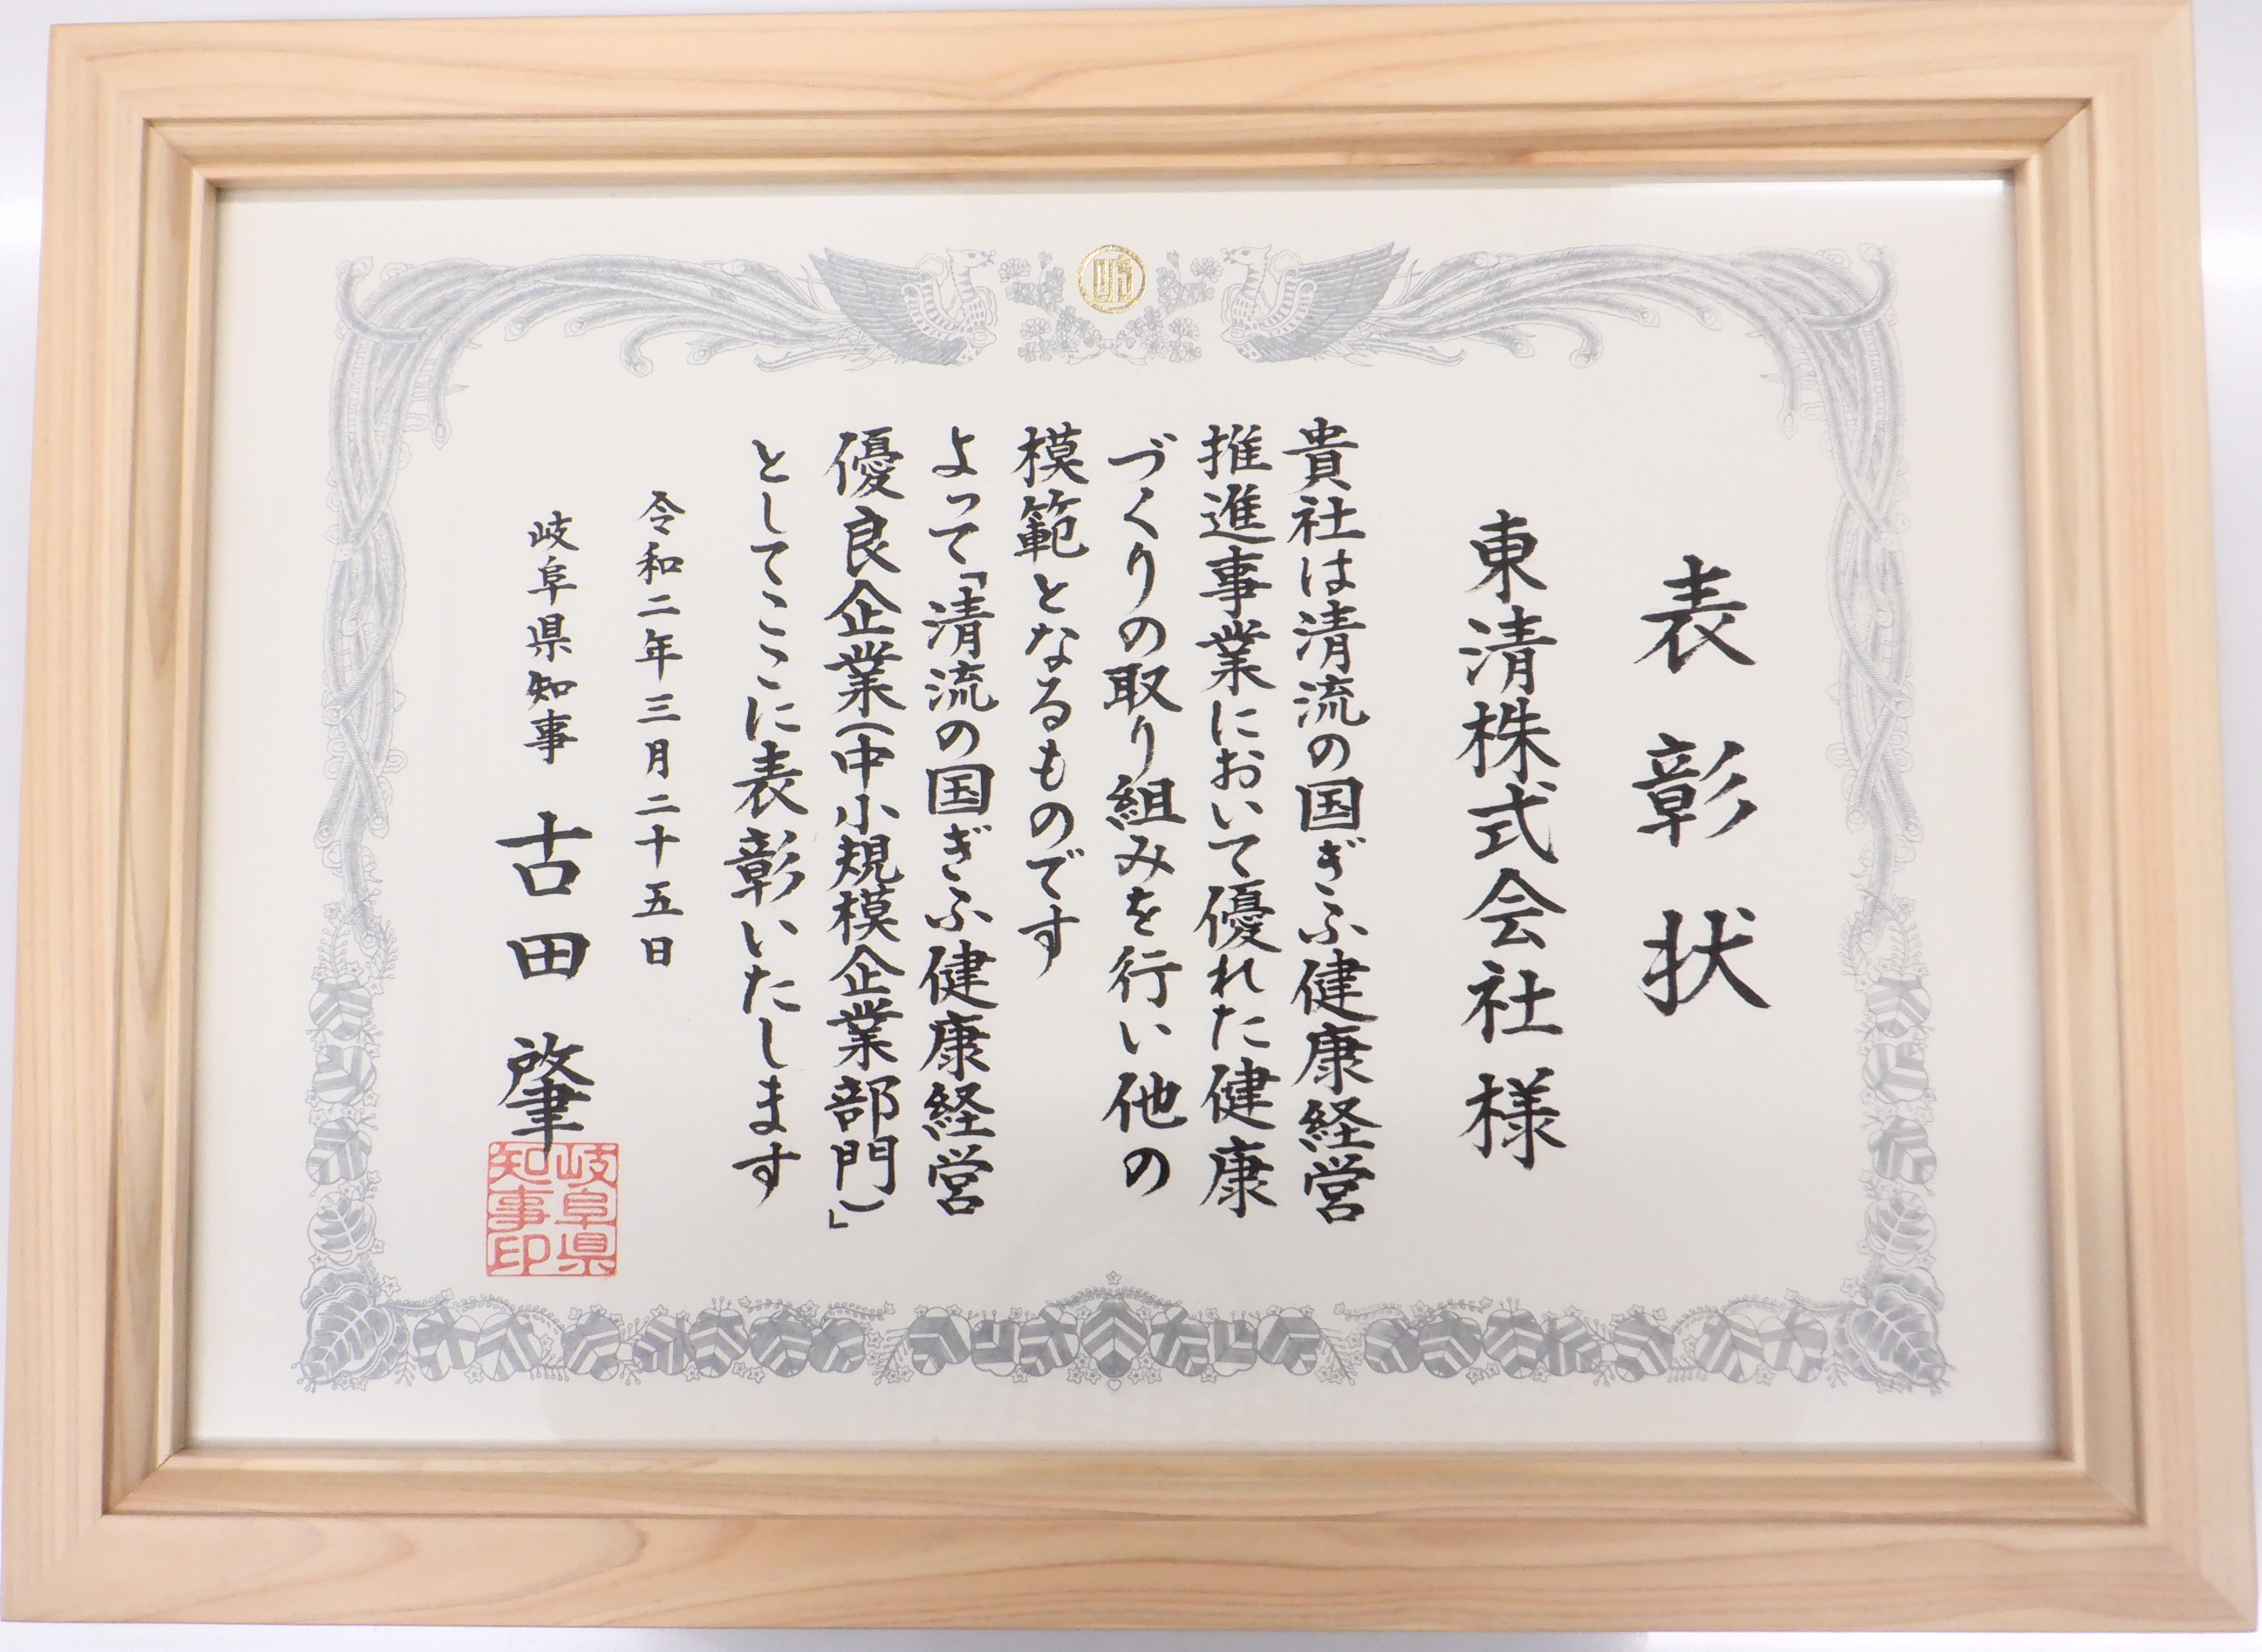 表彰状
東清株式会社様
貴社は清流の国ぎふ健康経営
推進事業において優れた健康
づくりの取り組みを行い他の
模範となるものです
よって「清流の国ぎふ健康経営
優良企業(中小規模企業部門)」
としてここに表彰いたします
令和二年三月二十五日
岐阜県知事 古田肇
岐阜県
知事印